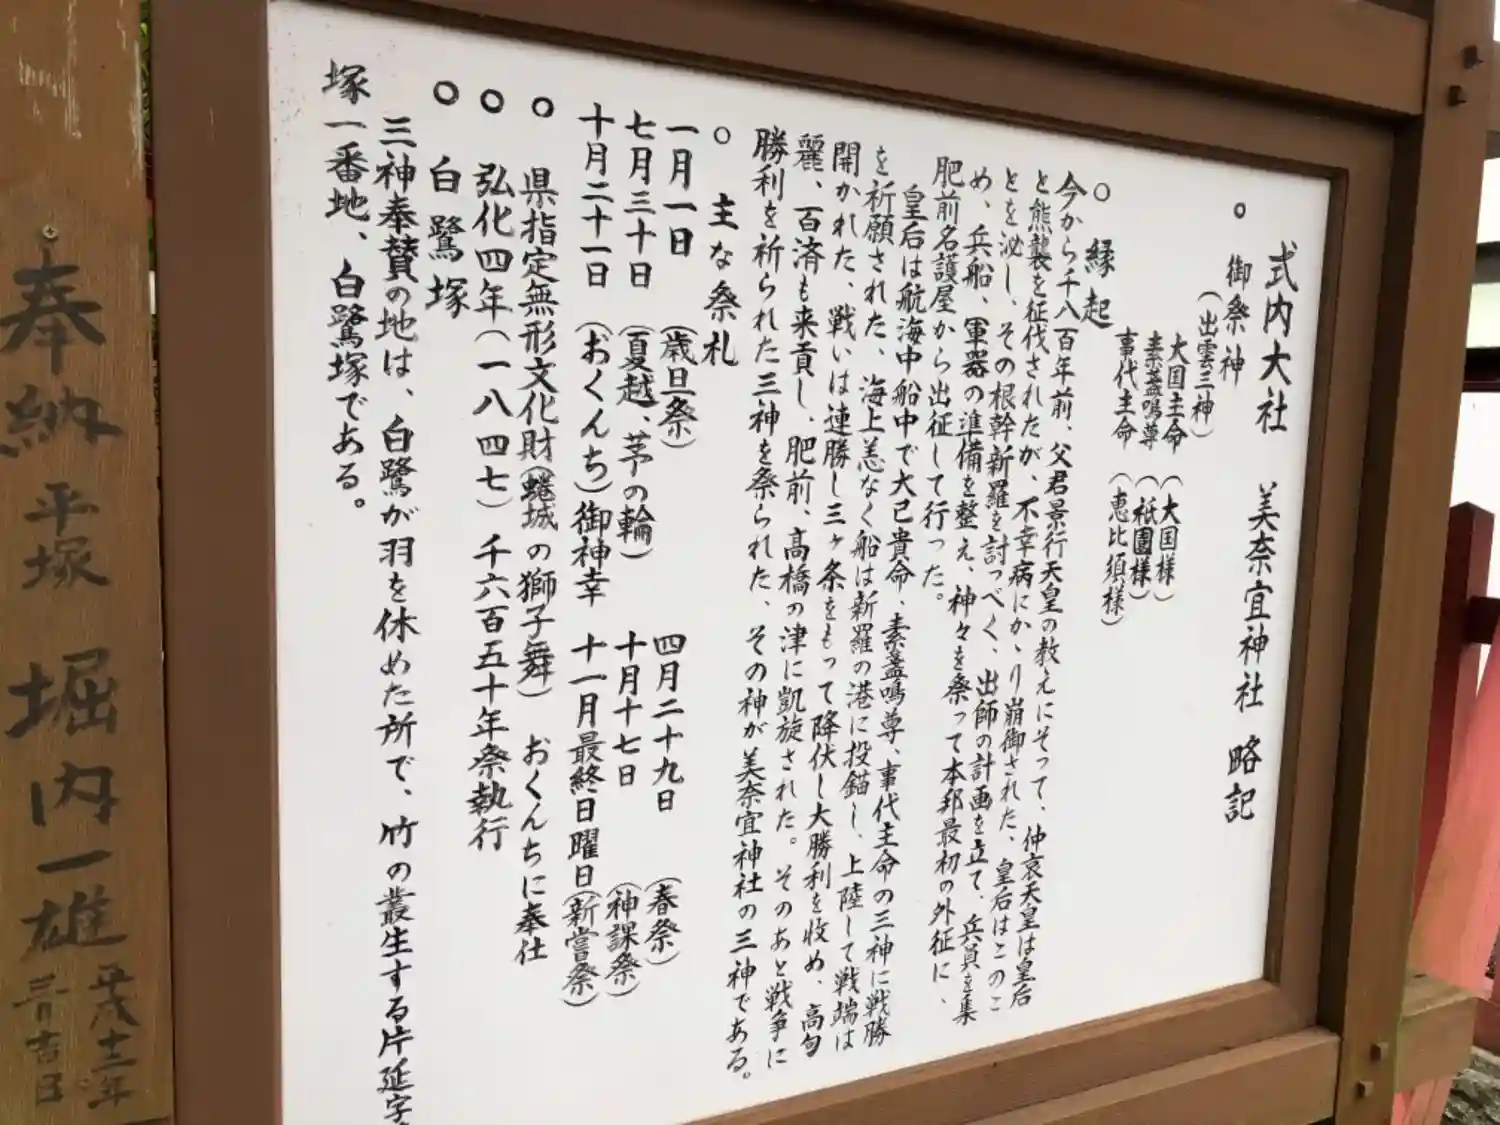 式内大社 美奈宜神社 略記
○ 御祭神
(出雲三神)
大国主命 (大国様)
素盞嗚尊 (祇園様)
事代主命 (恵比須様)
○ 縁起
今から千八百年前、父君景行天皇の教えにそって、仲哀天皇は皇后
と熊襲を征伐されたが、不幸病にかゝり崩御された、皇后はこのこ
とを泌し、その根幹新羅を討つべく、出師の計画を立て、兵員を集
め、兵船、軍器の準備を整え、神々を祭って本邦最初の外征に、
肥前名護屋から出征して行った。
皇后は航海中船中で大己貴命、素盞嗚尊、事代主命の三神に戦勝
を祈願された、海上恙なく船は新羅の港に投錨し、上陸して戦端は
開かれた、戦いは連勝し三ヶ条をもって降伏し大勝利を收め、高句
麗、百済も来貢し、肥前、高橋の津に凱旋された。そのあと戦争に
勝利を祈られた三神を祭られた、その神が美奈宜神社の三神である。
○ 主な祭礼
一月一日 (歳旦祭) 四月二十九日 (春祭)
七月三十日 (夏越、茅の輪) 十月十七日 (神課祭)
十月二十一日 (おくんち)御神幸 十一月最終日曜日(新嘗祭)
○ 県指定無形文化財(蜷城の獅子舞) おくんちに奉仕
○ 弘化四年(一八四七)千六百五十年祭執行
○ 白鷺塚
三神奉賛の地は、白鷺が羽を休めた所で、竹の叢生する片延字
塚一番地、白鷺塚である。
奉納 平塚 堀内一雄 平成十二年
三月吉日